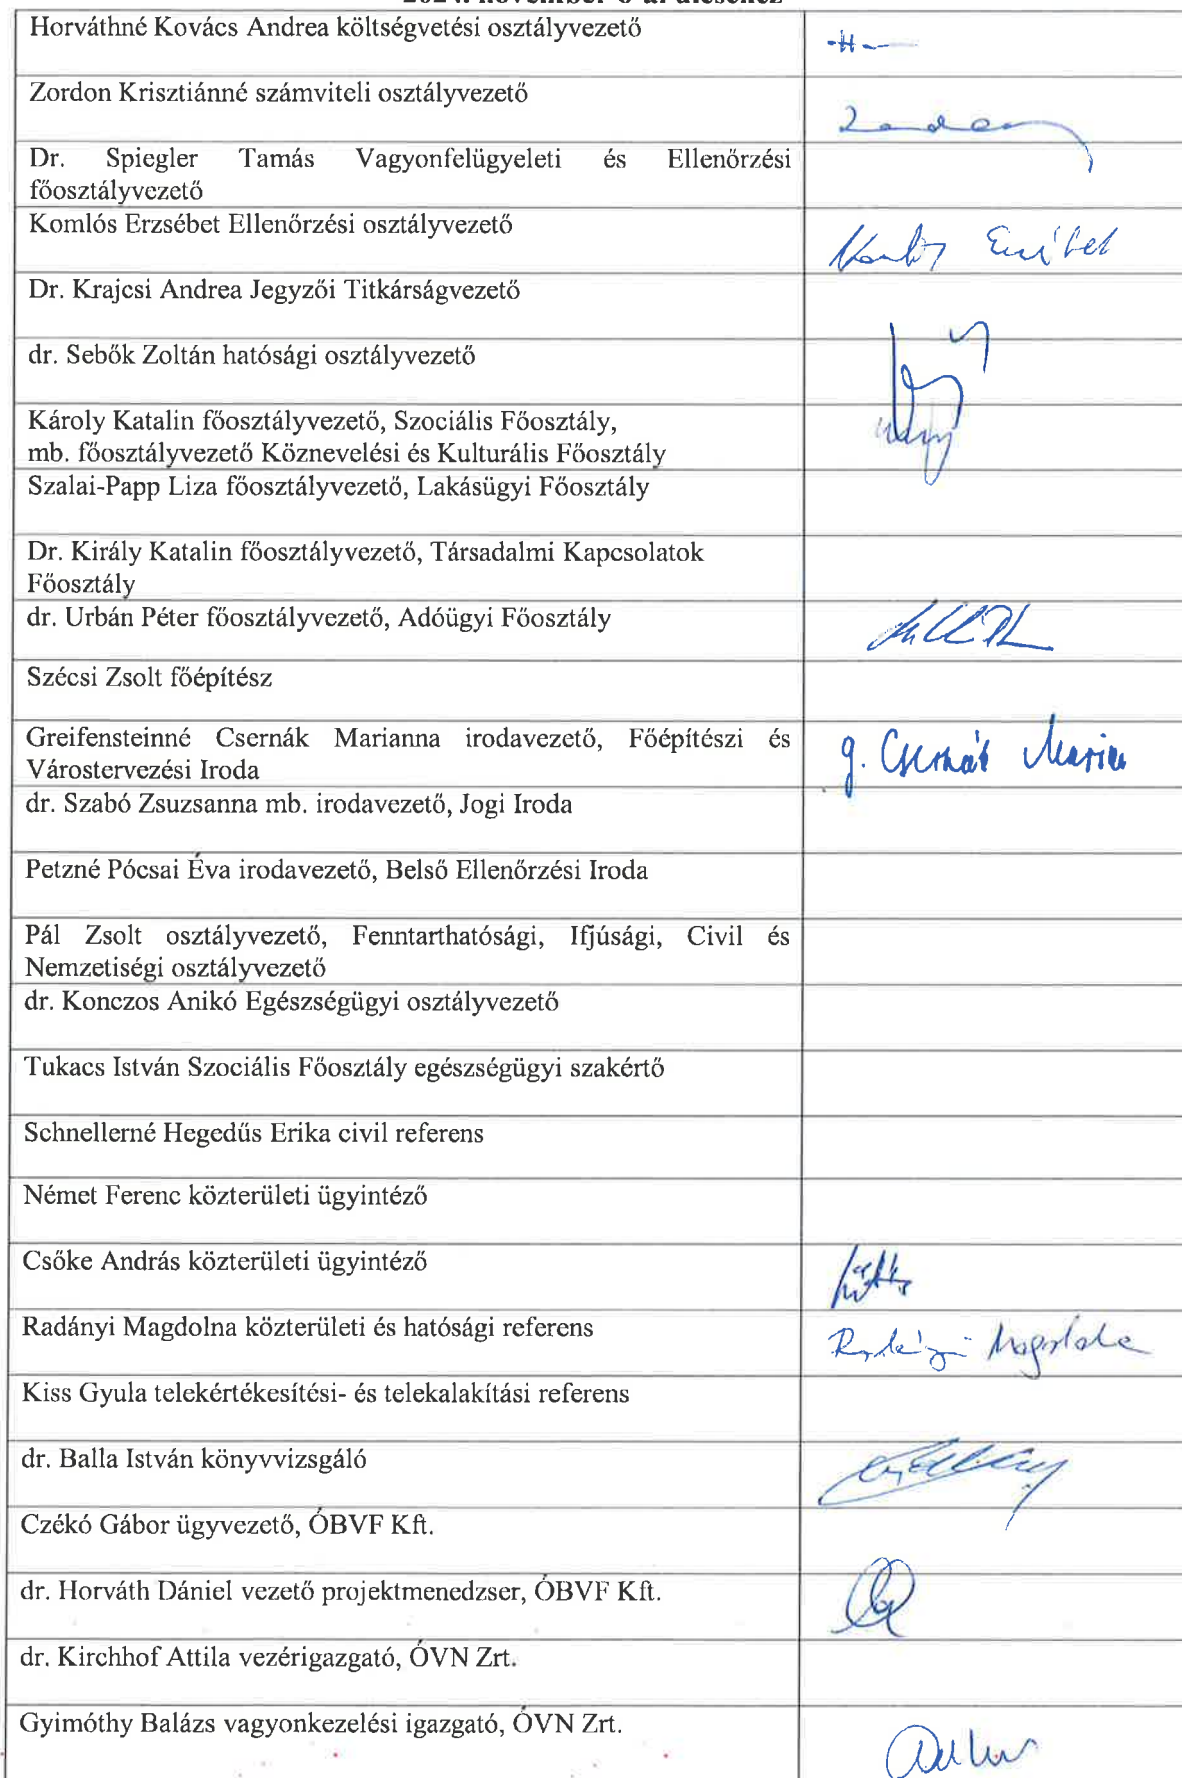 Horváthné Kovács Andrea költségvetési osztályvezető
Zordon Krisztiánné számviteli osztályvezető
Dr. Spiegler Tamás Vagyonfelügyeleti és Ellenőrzési
főosztályvezető
Komlós Erzsébet Ellenőrzési osztályvezető
Dr. Krajcsi Andrea Jegyzői Titkárságvezető
dr. Sebők Zoltán hatósági osztályvezető
Károly Katalin főosztályvezető, Szociális Főosztály,
mb. főosztályvezető Köznevelési és Kulturális Főosztály
Szalai-Papp Liza főosztályvezető, Lakásügyi Főosztály
Dr. Király Katalin főosztályvezető, Társadalmi Kapcsolatok
Főosztály
dr. Urbán Péter főosztályvezető, Adóügyi Főosztály
Szécsi Zsolt főépítész
Greifensteinné Csernák Marianna irodavezető, Főépítészi és
Várostervezési Iroda
g. Csernák Mariann
dr. Szabó Zsuzsanna mb. irodavezető, Jogi Iroda
Petzné Pócsai Éva irodavezető, Belső Ellenőrzési Iroda
Pál Zsolt osztályvezető, Fenntarthatósági, Ifjúsági, Civil és
Nemzetiségi osztályvezető
dr. Konczos Anikó Egészségügyi osztályvezető
Tukacs István Szociális Főosztály egészségügyi szakértő
Schnellerné Hegedűs Erika civil referens
Német Ferenc közterületi ügyintéző
Csőke András közterületi ügyintéző
Radányi Magdolna közterületi és hatósági referens
Radányi Magdolna
Kiss Gyula telekértékesítési- és telekalakítási referens
dr. Balla István könyvvizsgáló
Czékó Gábor ügyvezető, ÓBVF Kft.
dr. Horváth Dániel vezető projektmenedzser, ÓBVF Kft.
dr. Kirchhof Attila vezérigazgató, ÓVN Zrt.
Gyimóthy Balázs vagyonkezelési igazgató, ÓVN Zrt.